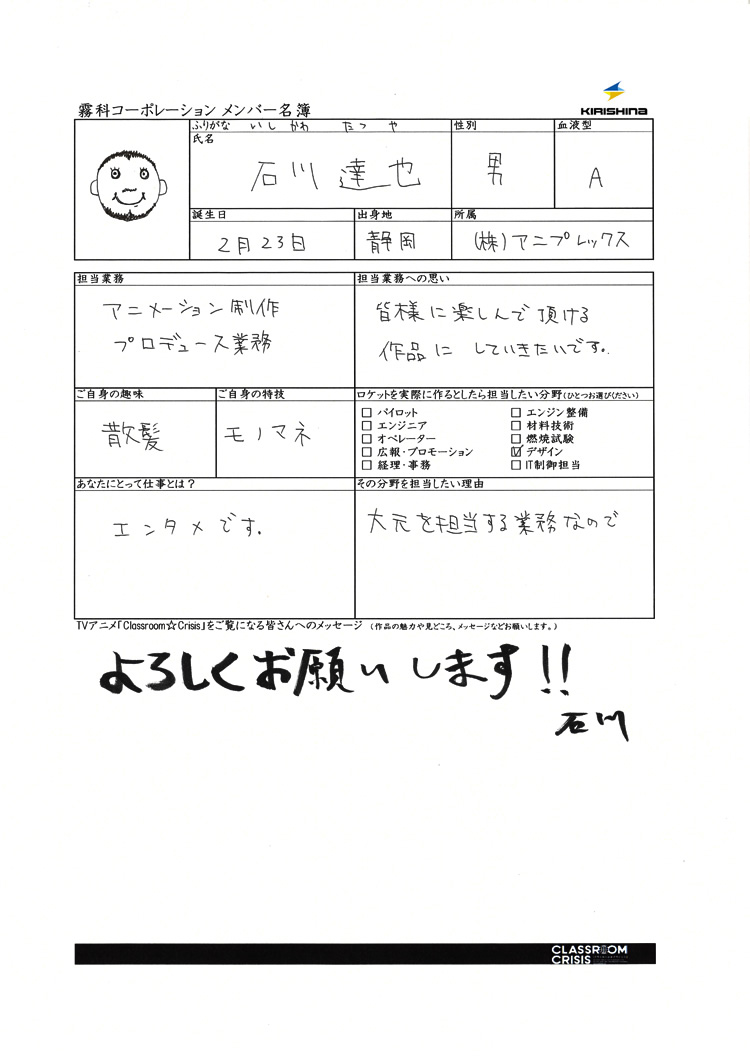 霧科コーポレーション メンバー名簿
KIRISHINA
ふりがな いしかわ たつや
性別
血液型
氏名
石川 達也
男
A
誕生日
出身地
所属
2月23日
静岡
(株)アニプレックス
担当業務
担当業務への思い
アニメーション制作
プロデュース業務
皆様に楽しんで頂ける
作品に していきたいです。
ご自身の趣味
ご自身の特技
ロケットを実際に作るとしたら担当したい分野(ひとつお選びください)
散髪
モノマネ
□ パイロット
□ エンジン整備
□ エンジニア
□ 材料技術
□ オペレーター
□ 燃焼試験
□ 広報・プロモーション
☑ デザイン
□ 経理・事務
□ IT制御担当
あなたにとって仕事とは?
その分野を担当したい理由
エンタメです。
大元を担当する業務なので
TVアニメ「Classroom☆Crisis」をご覧になる皆さんへのメッセージ (作品の魅力や見どころ、メッセージなどお願いします。)
よろしくお願いします!!
石川
CLASSROOM
CRISIS